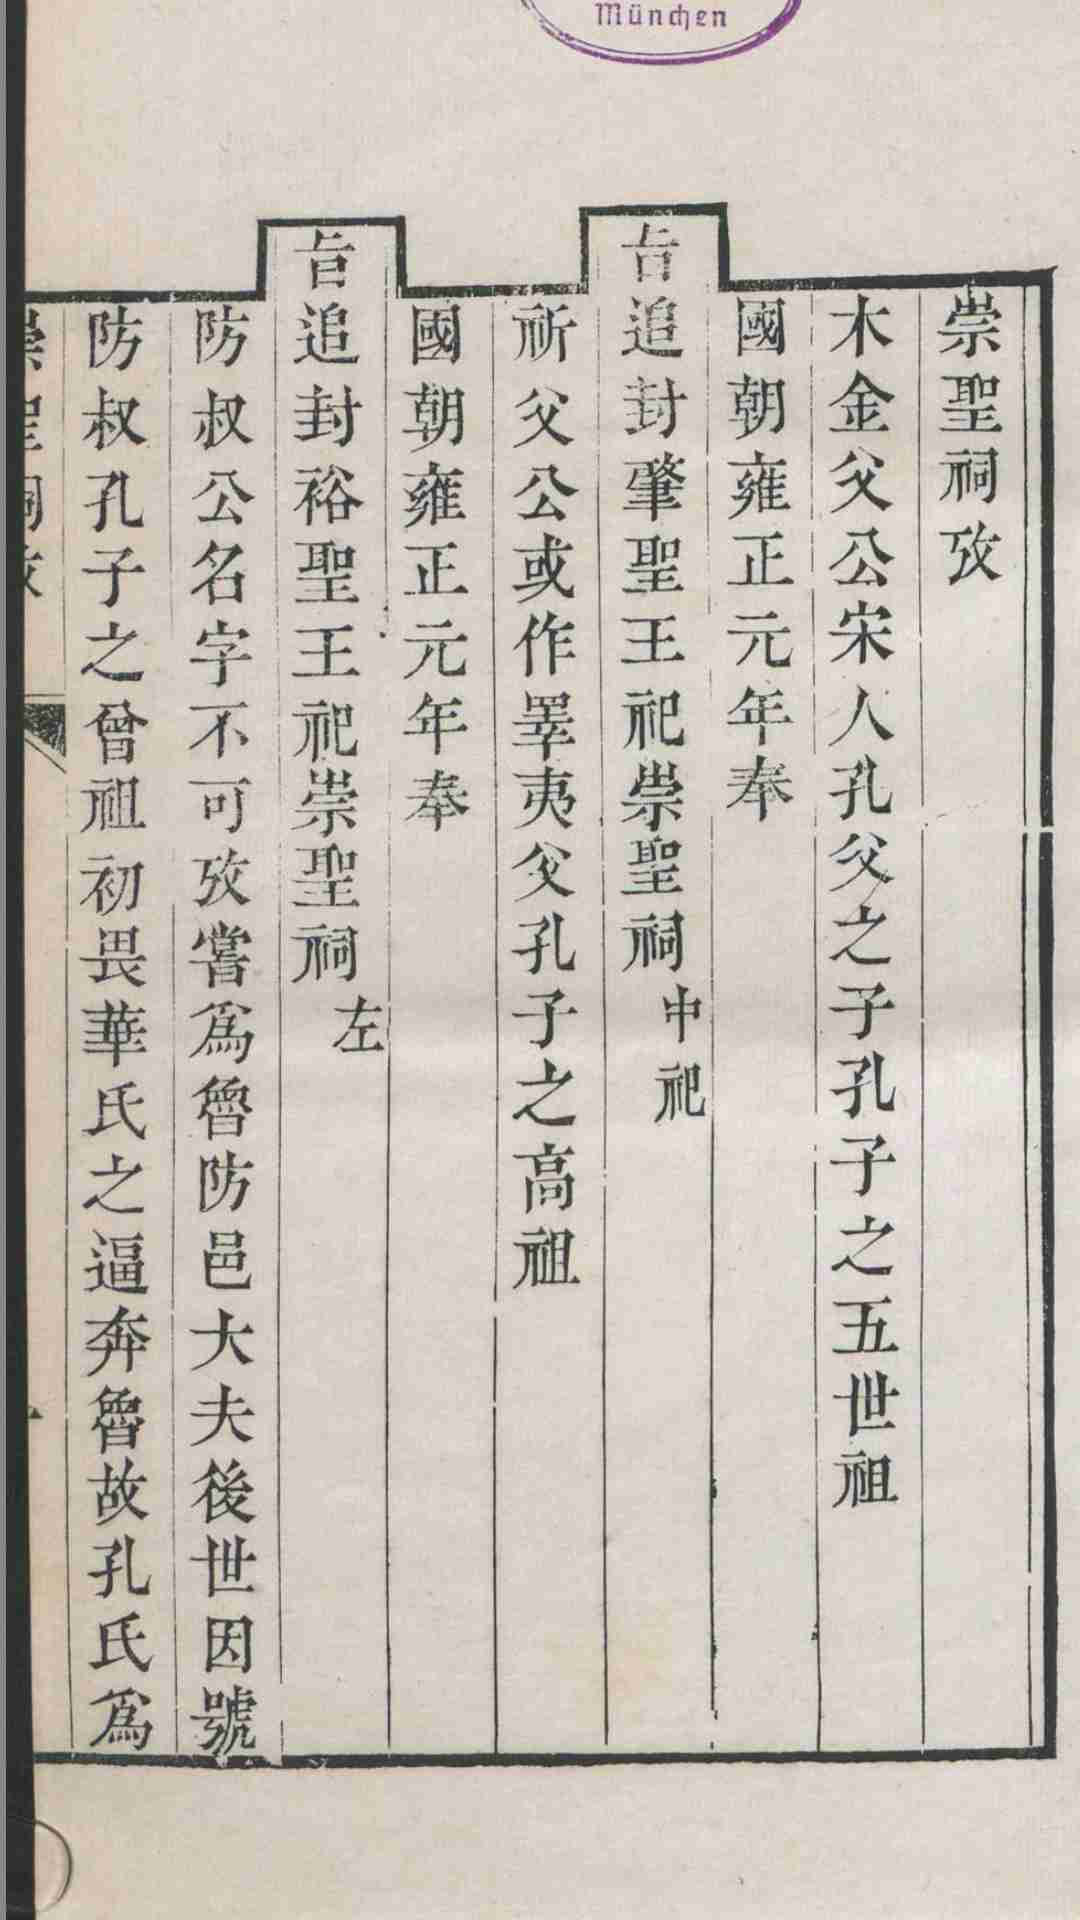 München
崇聖祠攷
木金父公宋人孔父之子孔子之五世祖
國朝雍正元年奉
旨追封肇聖王祀崇聖祠中祀
祈父公或作睪夷父孔子之高祖
國朝雍正元年奉
旨追封裕聖王祀崇聖祠左
防叔公名字不可攷嘗爲魯防邑大夫後世因號
防叔孔子之曾祖初畏華氏之逼奔魯故孔氏爲
崇聖祠攷